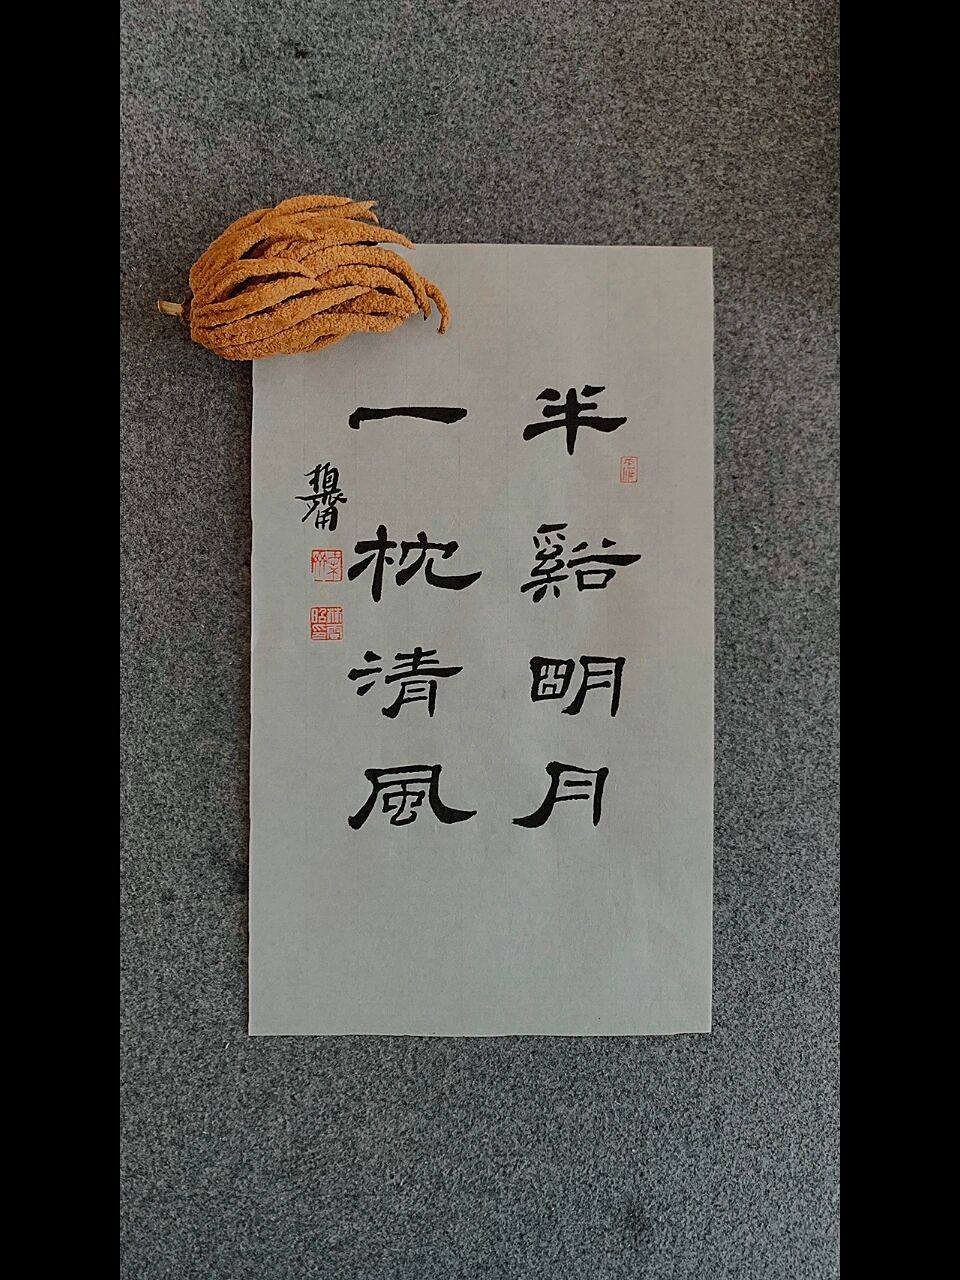 半谿明月
一枕清風